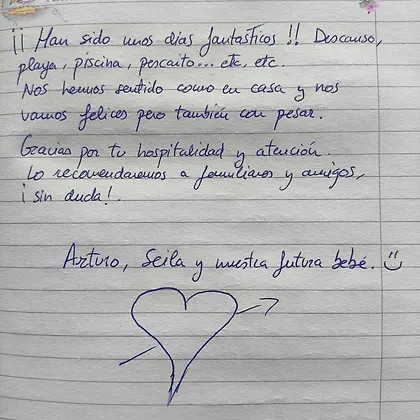 ¡¡ Han sido unos días fantásticos !! Descanso,
playa, piscina, pescaito... etc, etc.
Nos hemos sentido como en casa y nos
vamos felices pero también con pesar.
Gracias por tu hospitalidad y atención.
Lo recomendaremos a familiares y amigos,
¡ sin duda !.
Arturo, Seila y nuestra futura bebé. :)